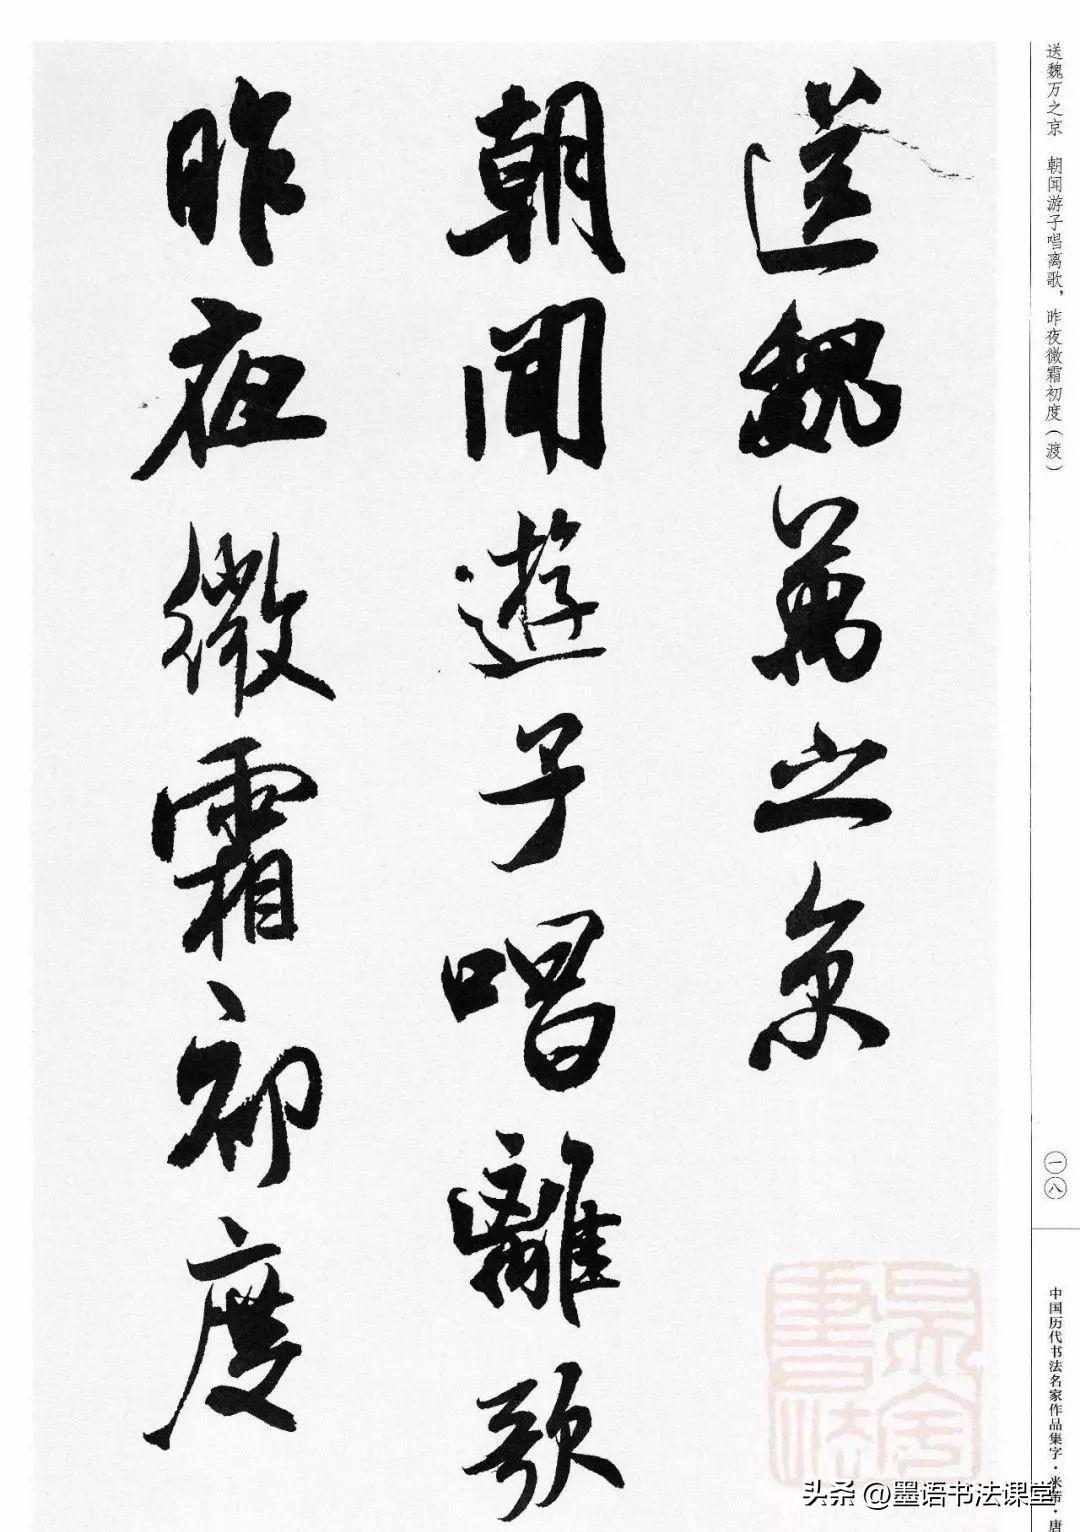 送魏萬之京
朝聞遊子唱離歌
昨夜微霜初度
送魏万之京　朝闻游子唱离歌，昨夜微霜初度（渡）
一八
中国历代书法名家作品集字·米芾·唐
头条 @墨语书法课堂